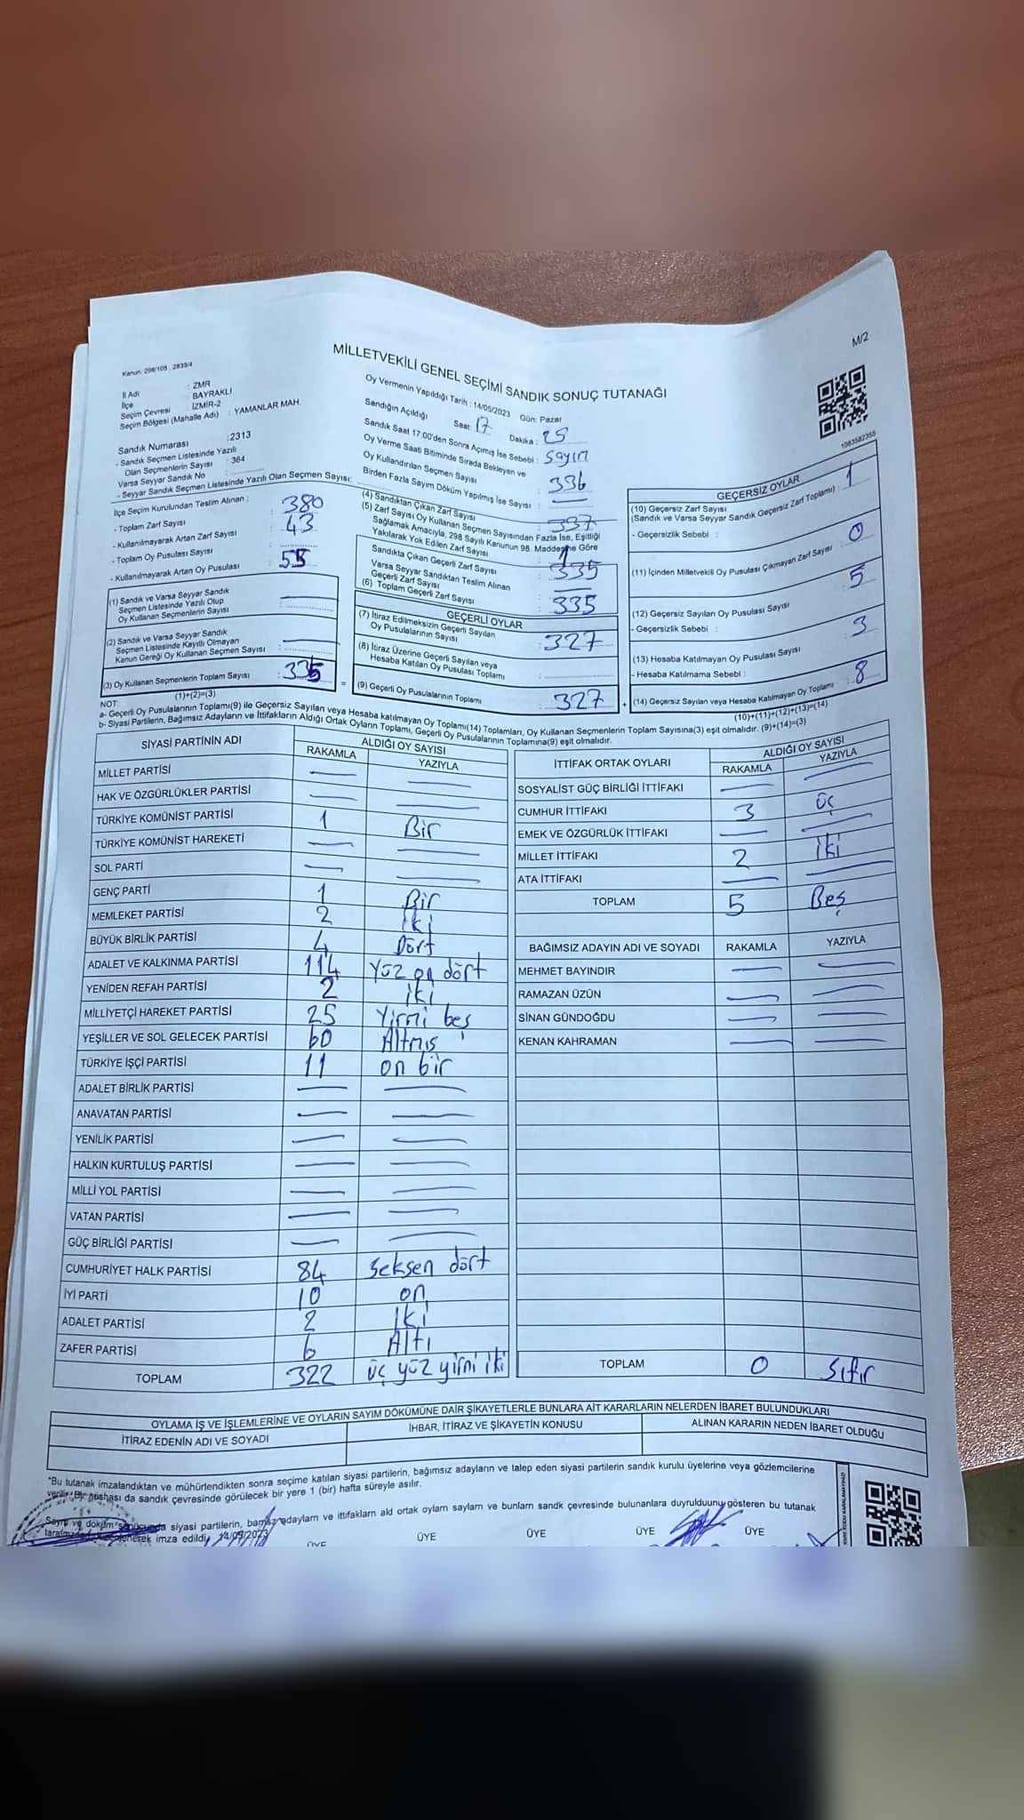 M/2
MİLLETVEKİLİ GENEL SEÇİMİ SANDIK SONUÇ TUTANAĞI
Kanun: 298/105 , 2839/4
İl Adı : ZMR
İlçe : BAYRAKLI
Seçim Çevresi : İZMİR-2
Seçim Bölgesi (Mahalle Adı) : YAMANLAR MAH.
Sandık Numarası :2313
- Sandık Seçmen Listesinde Yazılı
Olan Seçmenlerin Sayısı : 364
Varsa Seyyar Sandık No
- Seyyar Sandık Seçmen Listesinde Yazılı Olan Seçmen Sayısı:
İlçe Seçim Kurulundan Teslim Alınan :
- Toplam Zarf Sayısı 380
- Kullanılmayarak Artan Zarf Sayısı 43
- Toplam Oy Pusulası Sayısı
- Kullanılmayarak Artan Oy Pusulası
(1) Sandık ve Varsa Seyyar Sandık
Seçmen Listesinde Yazılı Olup
Oy Kullanan Seçmenlerin Sayısı
(2) Sandık ve Varsa Seyyar Sandık
Seçmen Listesinde Kayıtlı Olmayan
Kanun Gereği Oy Kullanan Seçmen Sayısı :
(3) Oy Kullanan Seçmenlerin Toplam Sayısı : 335
(1)+(2)=(3)
Oy Vermenin Yapıldığı Tarih : 14/05/2023 Gün: Pazar
Sandığın Açıldığı Saat: 17 Dakika : 25
Sandık Saat 17:00'den Sonra Açılmış İse Sebebi : Sayım
Oy Verme Saati Bitiminde Sırada Bekleyen ve
Oy Kullandırılan Seçmen Sayısı 336
Birden Fazla Sayım Döküm Yapılmış İse Sayısı :
(4) Sandıktan Çıkan Zarf Sayısı 337
(5) Zarf Sayısı Oy Kullanan Seçmen Sayısından Fazla İse, Eşitliği
Sağlamak Amacıyla, 298 Sayılı Kanunun 98. Maddesine Göre
Yakılarak Yok Edilen Zarf Sayısı 1
Sandıkta Çıkan Geçerli Zarf Sayısı 335
Varsa Seyyar Sandıktan Teslim Alınan
Geçerli Zarf Sayısı
(6) Toplam Geçerli Zarf Sayısı 335
GEÇERLİ OYLAR
(7) İtiraz Edilmeksizin Geçerli Sayılan
Oy Pusulalarının Sayısı : 327
(8) İtiraz Üzerine Geçerli Sayılan veya
Hesaba Katılan Oy Pusulası Toplamı
(9) Geçerli Oy Pusulalarının Toplamı : 327
1083582355
GEÇERSİZ OYLAR
(10) Geçersiz Zarf Sayısı
(Sandık ve Varsa Seyyar Sandık Geçersiz Zarf Toplamı) 1
- Geçersizlik Sebebi :
(11) İçinden Milletvekili Oy Pusulası Çıkmayan Zarf Sayısı 0
(12) Geçersiz Sayılan Oy Pusulası Sayısı 5
- Geçersizlik Sebebi :
(13) Hesaba Katılmayan Oy Pusulası Sayısı 3
- Hesaba Katılmama Sebebi :
(14) Geçersiz Sayılan veya Hesaba Katılmayan Oy Toplamı : 8
(10)+(11)+(12)+(13)=(14)
NOT:
a- Geçerli Oy Pusulaları Toplamı(9) ile Geçersiz Sayılan veya Hesaba katılmayan Oy Toplamı(14) Toplamları, Oy Kullanan Seçmenlerin Toplam Sayısına(3) eşit olmalıdır. (9)+(14)=(3)
b- Siyasi Partilerin, Bağımsız Adayların ve İttifakların Aldığı Ortak Oyların Toplamı, Geçerli Oy Pusulalarının Toplamına(9) eşit olmalıdır.
SİYASİ PARTİNİN ADI ALDIĞI OY SAYISI
RAKAMLA YAZIYLA
MİLLET PARTİSİ
HAK VE ÖZGÜRLÜKLER PARTİSİ
TÜRKİYE KOMÜNİST PARTİSİ 1 Bir
TÜRKİYE KOMÜNİST HAREKETİ
SOL PARTİ
GENÇ PARTİ 1 Bir
MEMLEKET PARTİSİ 2 İki
BÜYÜK BİRLİK PARTİSİ 4 Dört
ADALET VE KALKINMA PARTİSİ 114 Yüz on dört
YENİDEN REFAH PARTİSİ 2 İki
MİLLİYETÇİ HAREKET PARTİSİ 25 Yirmi beş
YEŞİLLER VE SOL GELECEK PARTİSİ 60 Altmış
TÜRKİYE İŞÇİ PARTİSİ 11 on bir
ADALET BİRLİK PARTİSİ
ANAVATAN PARTİSİ
YENİLİK PARTİSİ
HALKIN KURTULUŞ PARTİSİ
MİLLİ YOL PARTİSİ
VATAN PARTİSİ
GÜÇ BİRLİĞİ PARTİSİ
CUMHURİYET HALK PARTİSİ 84 Seksen dört
İYİ PARTİ 10 on
ADALET PARTİSİ 2 İki
ZAFER PARTİSİ 6 Altı
TOPLAM 322 üç yüz yirmi iki
İTTİFAK ORTAK OYLARI ALDIĞI OY SAYISI
RAKAMLA YAZIYLA
SOSYALİST GÜÇ BİRLİĞİ İTTİFAKI
CUMHUR İTTİFAKI 3 üç
EMEK VE ÖZGÜRLÜK İTTİFAKI
MİLLET İTTİFAKI 2 İki
ATA İTTİFAKI
TOPLAM 5 Beş
BAĞIMSIZ ADAYIN ADI VE SOYADI RAKAMLA YAZIYLA
MEHMET BAYINDIR
RAMAZAN ÜZÜN
SİNAN GÜNDOĞDU
KENAN KAHRAMAN
TOPLAM 0 Sıfır
OYLAMA İŞ VE İŞLEMLERİNE VE OYLARIN SAYIM DÖKÜMÜNE DAİR ŞİKAYETLERLE BUNLARA AİT KARARLARIN NELERDEN İBARET BULUNDUKLARI
İTİRAZ EDENİN ADI VE SOYADI İHBAR, İTİRAZ VE ŞİKAYETİN KONUSU ALINAN KARARIN NEDEN İBARET OLDUĞU
*Bu tutanak imzalandıktan ve mühürlendikten sonra seçime katılan siyasi partilerin, bağımsız adayların ve talep eden siyasi partilerin sandık kurulu üyelerine veya gözlemcilerine
verilir. Bir nüshası da sandık çevresinde görülecek bir yere 1 (bir) hafta süreyle asılır.
siyasi partilerin, bağımsız adayların ve ittifakların ald ortak oyların sayların ve bunların sandk çevresinde bulunanlara duyrulduunu gösteren bu tutanak
imza edildi. 14/05/2023
ÜYE ÜYE ÜYE ÜYE ÜYE